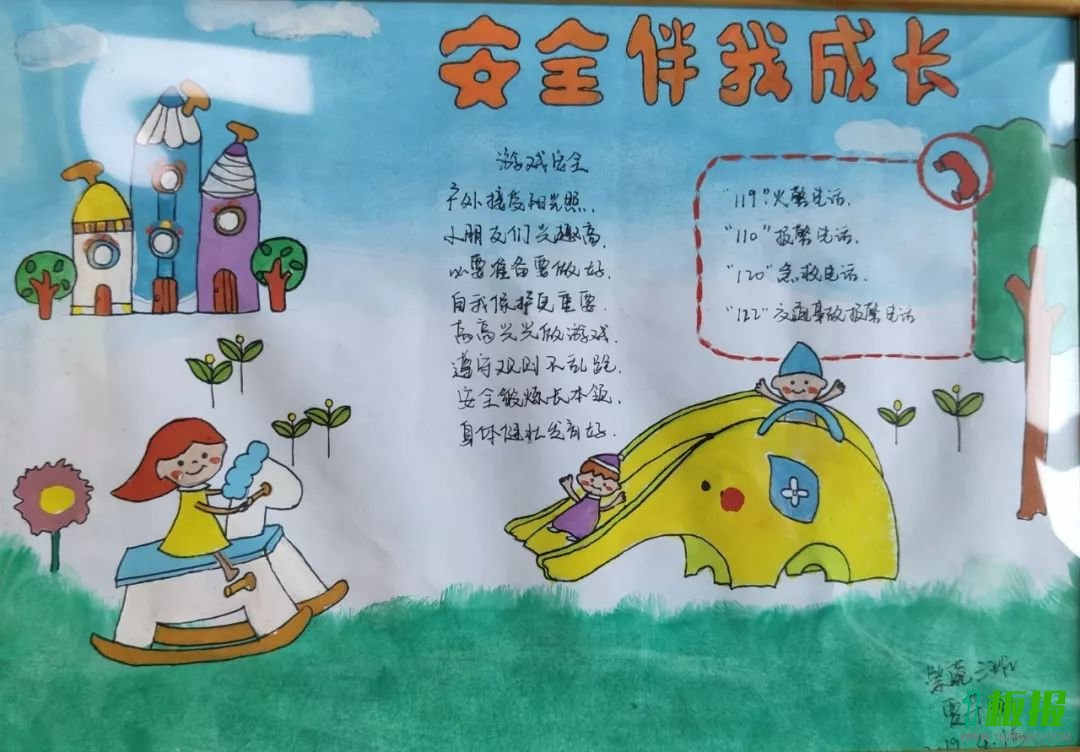 安全伴我成长
游戏安全
户外接受阳光照,
小朋友们兴趣高,
必要准备要做好,
自我保护更重要.
高高兴兴做游戏,
遵守规则不乱跑,
安全锻炼长本领,
身体健壮发育好.
"119":火警电话.
"110"报警电话.
"120"急救电话.
"122"交通事故报警电话
板报